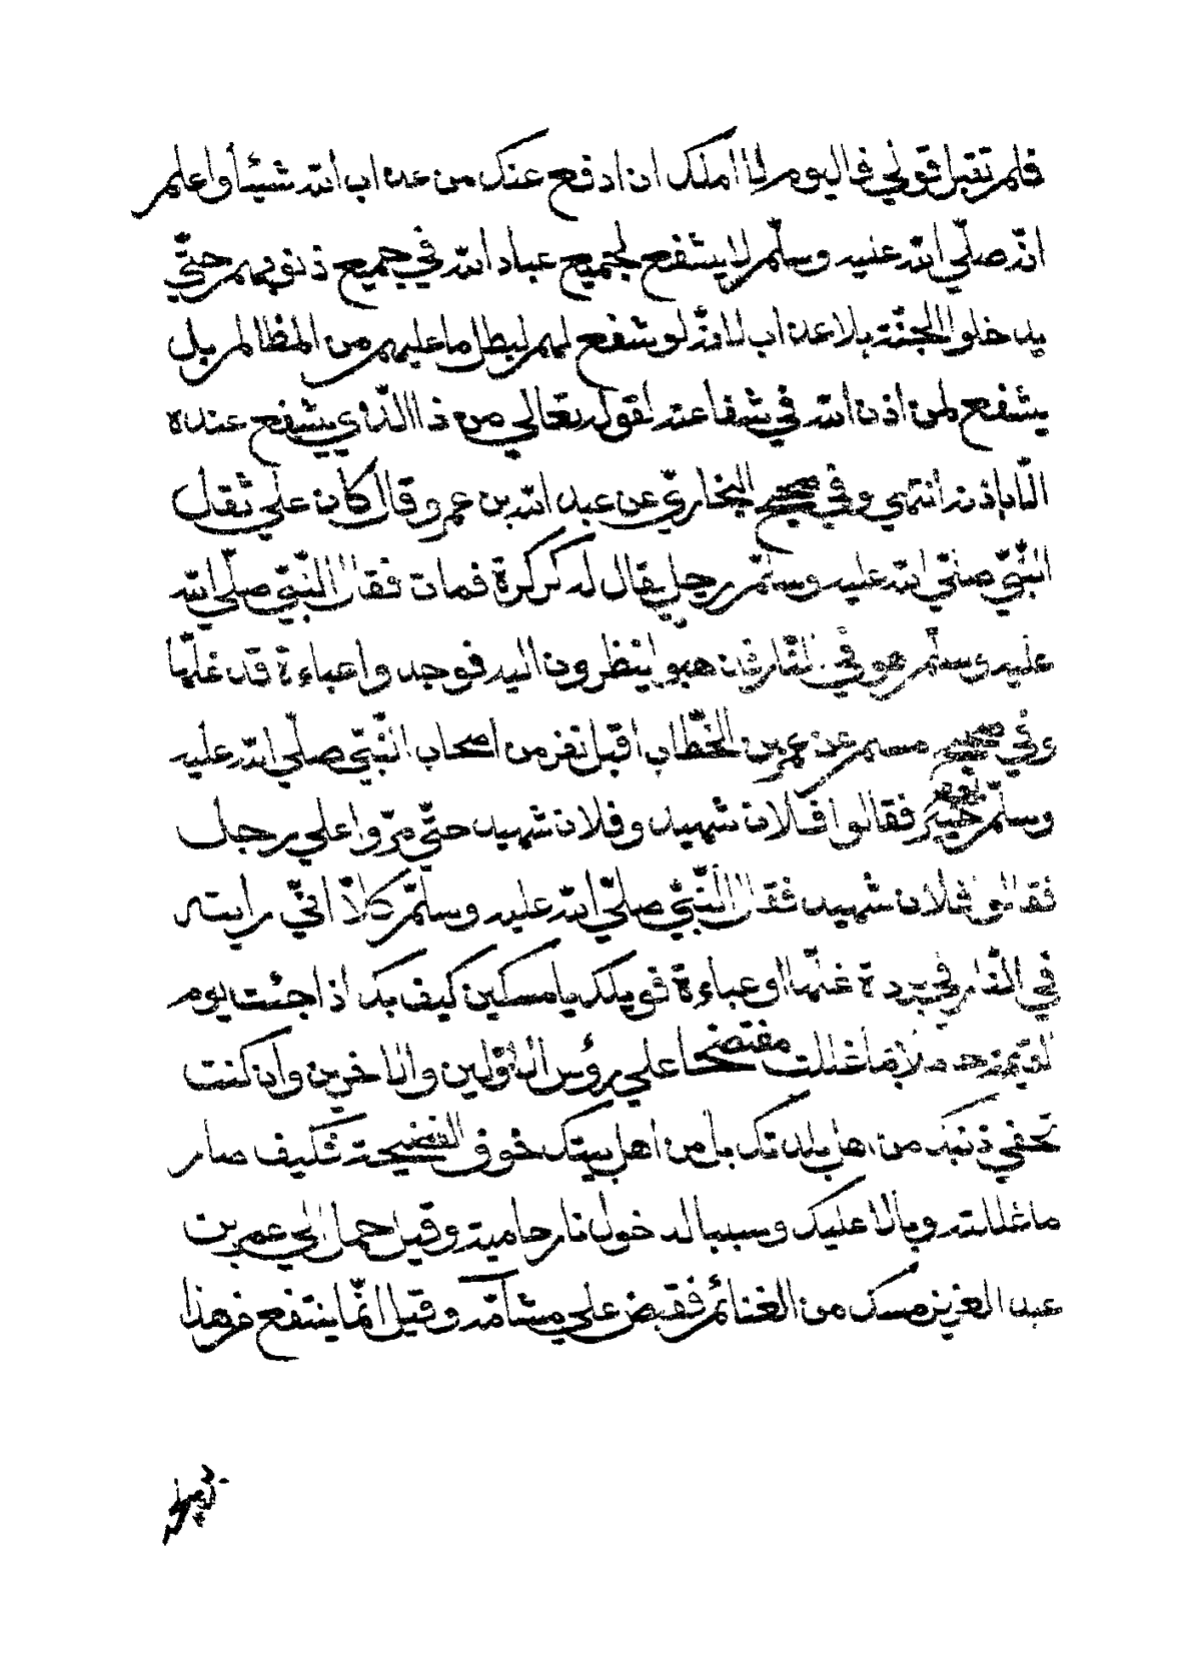 فلم تقبل قولي فاليوم لا املك ان ادفع عنك من عذاب الله شيئا واعلم
انه صلّي الله عليه وسلّم لا يشفع لجميع عباد الله في جميع ذنوبهم حتّي
يدخلوا الجنّة بلا عذاب لانّه لو شفع لهم ليبطل ما عليهم من المظالم بل
يشفع لمن اذن الله في شفاعته لقوله تعالي من ذا الّذي يشفع عنده
الّا باذنه انتهي وفي صحيح البخاريّ عن عبد الله بن عمرو قال كان علي ثقل
النّبيّ صلّي الله عليه وسلّم رجل يقال له كركرة فمات فقال النّبيّ صلّي الله
عليه وسلّم هو في النّار فذهبوا ينظرون اليه فوجدوا عباءة قد غلّها
وفي صحيح مسلم عن عمر بن الخطّاب اقبل نفر من اصحاب النّبيّ صلّي الله عليه
وسلّم يوم خيبر فقالوا فلان شهيد وفلان شهيد حتّي مرّوا علي رجل
فقالوا فلان شهيد فقال النّبيّ صلّي الله عليه وسلّم كلّا انّي رايته
في النّار في بردة غلّها او عباءة فويلك يا مسكين كيف بك اذا جئت يوم
القيمة حاملا بما غللت مفتضحا علي رؤس الاوّلين والاخرين وان كنت
تخفي ذنبك من اهل بلدتك بل من اهل بيتك خوف الفضيحة فكيف صار
ما غللته وبالا عليك وسببا لدخول نار حامية وقيل حمل الي عمر بن
عبد العزيز مسك من الغنائم فقبض علي مشامّه وقيل انّما ينتفع من هذا